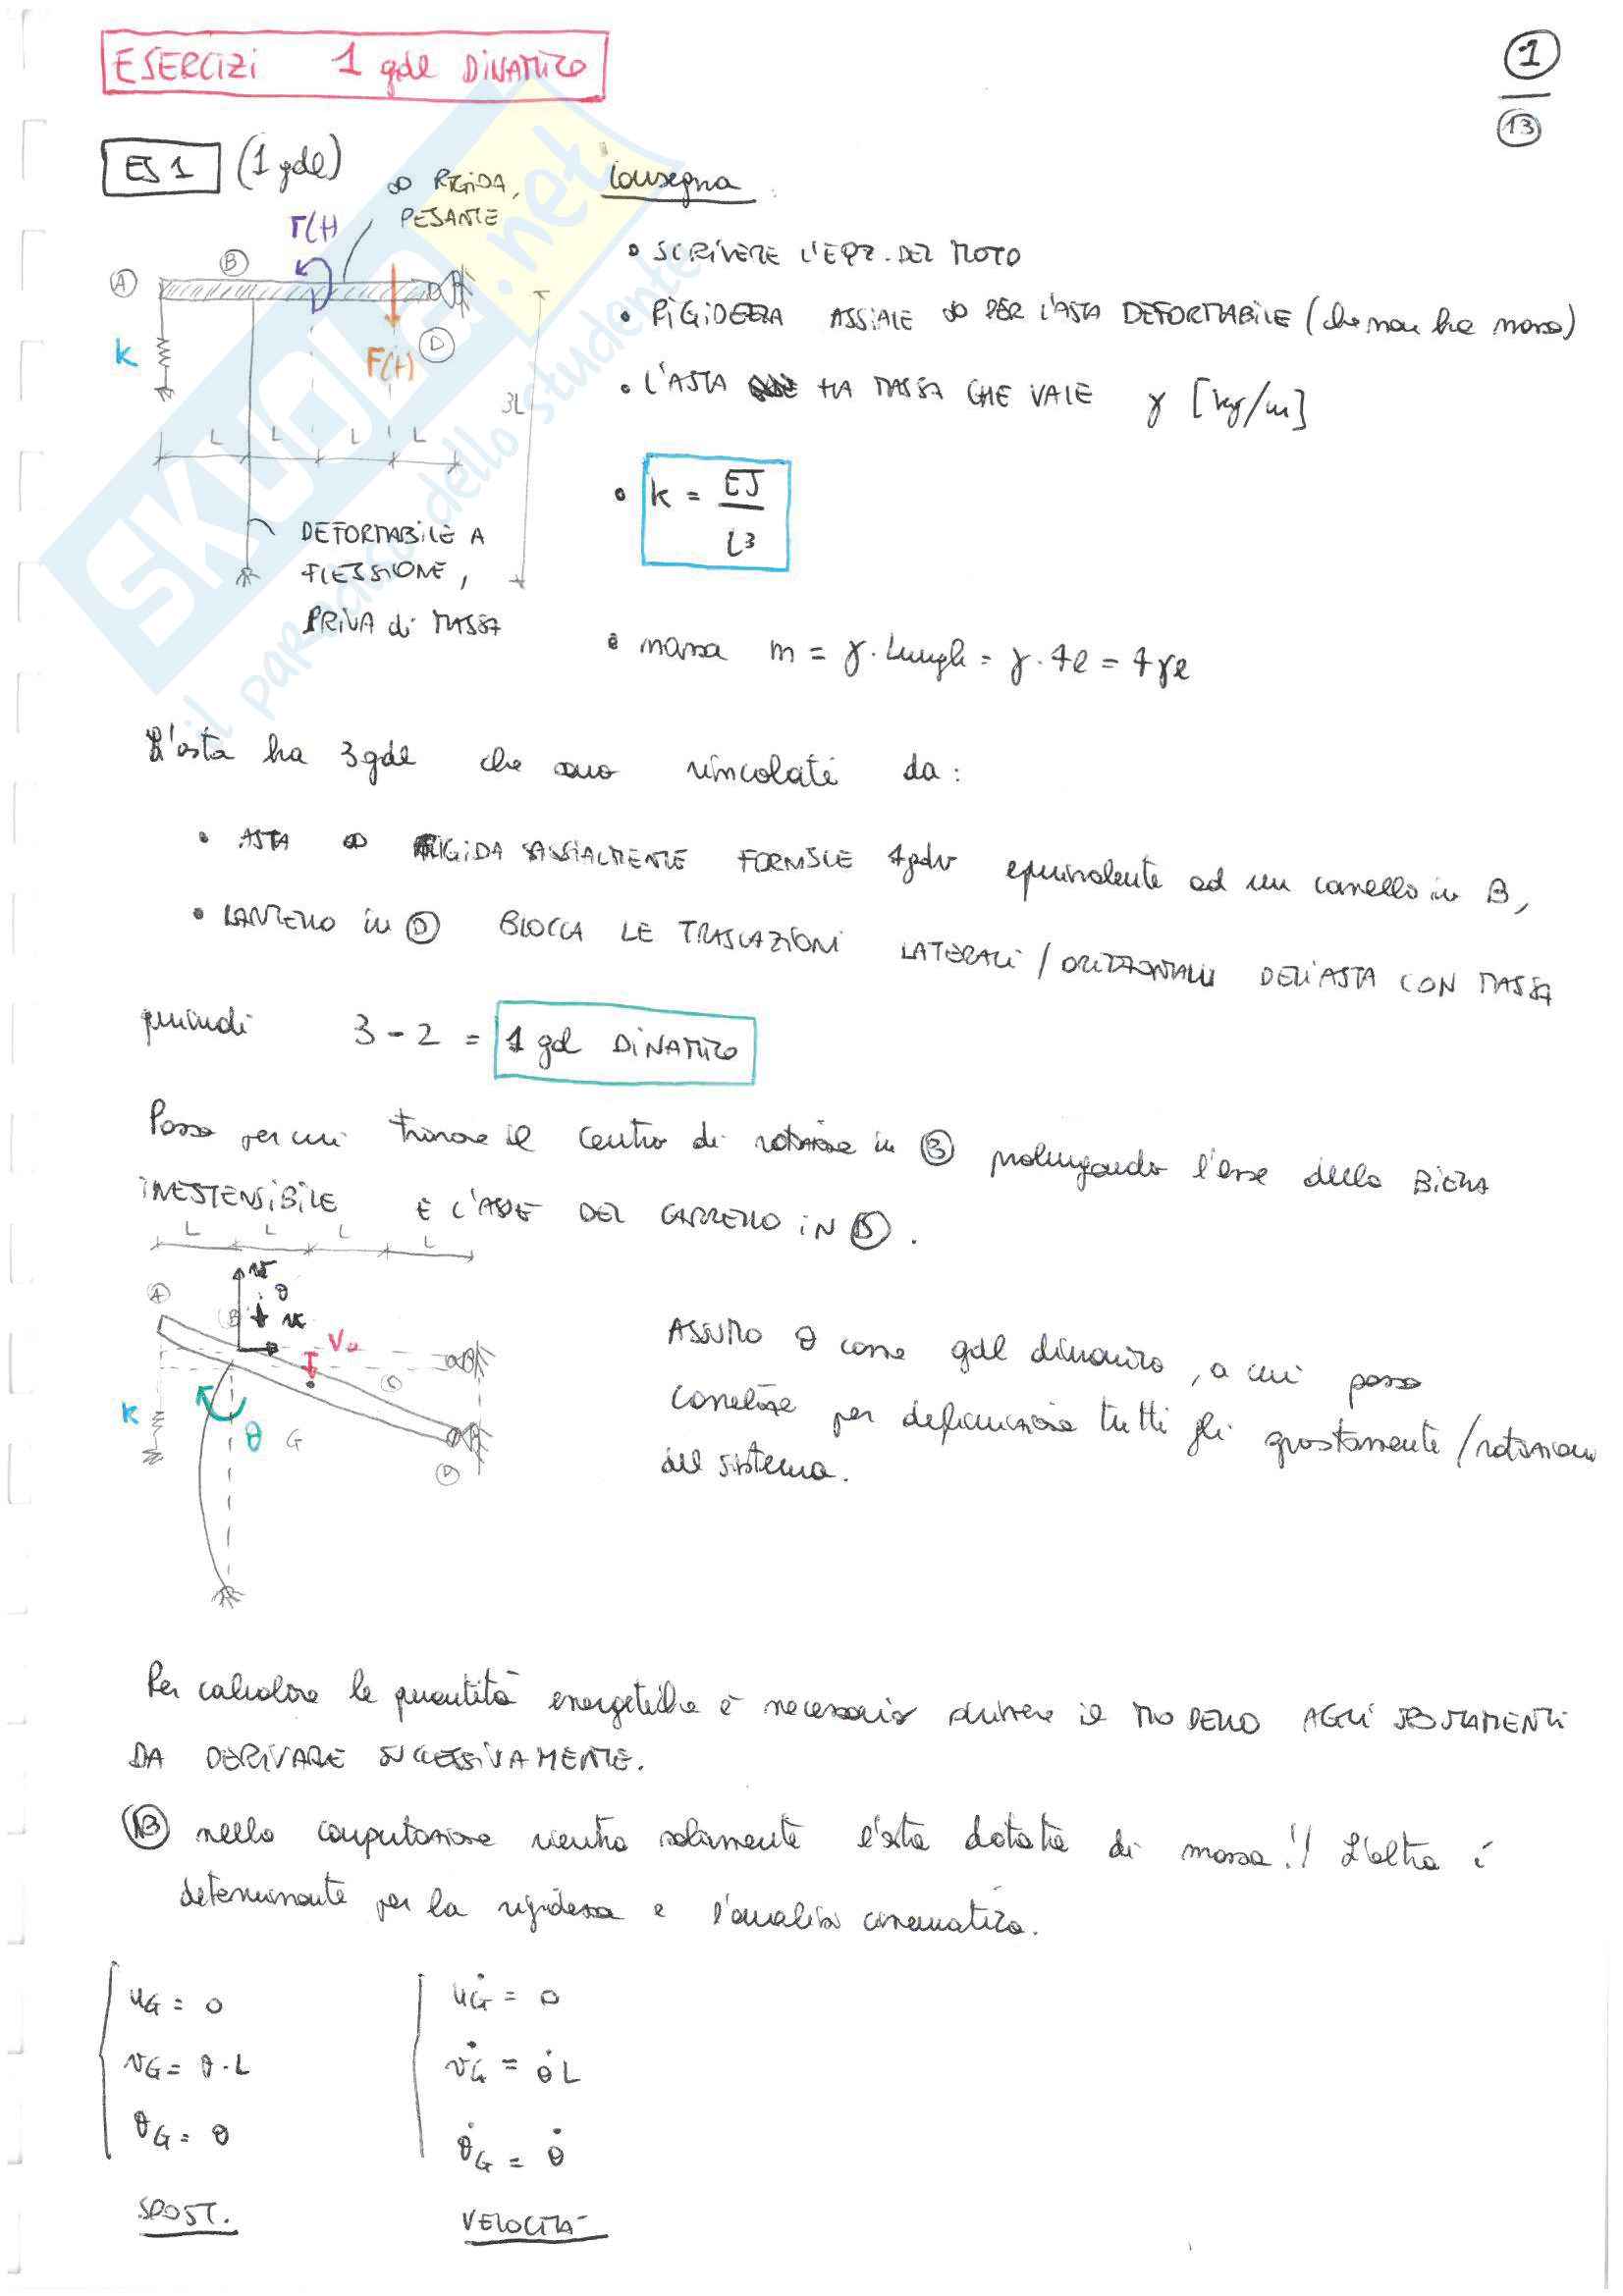 ESERCIZI 1 gdl DINAMICO
1
13
ES 1 (1 gdl)
∞ RIGIDA,
PESANTE
Consegna
Γ(t)
B
A
k
F(t)
D
3L
L L L L
DEFORMABILE A
FLESSIONE,
PRIVA di MASSA
• SCRIVERE L'EQZ. DEL MOTO
• RIGIDEZZA ASSIALE ∞ PER L'ASTA DEFORMABILE (che non ha massa)
• L'ASTA HA MASSA CHE VALE γ [kg/m]
• k = EJ / L³
• massa m = γ · Lungh = γ · 4l = 4γl
L'asta ha 3gdl che sono vincolati da:
• ASTA ∞ RIGIDA ASSIALMENTE FORNISCE 1gdv equivalente ad un carrello in B,
• CARRELLO in D BLOCCA LE TRASLAZIONI LATERALI / ORIZZONTALI DELL'ASTA CON MASSA
quindi 3 - 2 = 1 gdl DINAMICO
Posso per cui trovare il centro di rotazione in B prolungando l'asse della BIELLA
INESTENSIBILE E L'ASSE DEL CARRELLO IN D.
L L L L
A
B
v
θ
u
VG
C
k
θ
G
D
ASSUMO θ come gdl dinamico, a cui posso
correlare per definizione tutti gli spostamenti/rotazioni
del sistema.
Per calcolare le quantità energetiche è necessario scrivere il MODELLO AGLI SPOSTAMENTI
DA DERIVARE SUCCESSIVAMENTE.
NB nella computazione rientra solamente l'asta dotata di massa!! L'altra è
determinante per la rigidezza e l'analisi cinematica.
uG = 0
vG = θ · L
θG = θ
SPOST.
u̇G = 0
v̇G = θ̇L
θ̇G = θ̇
VELOCITÀ
SKUOLA.net
il paradiso dello studente